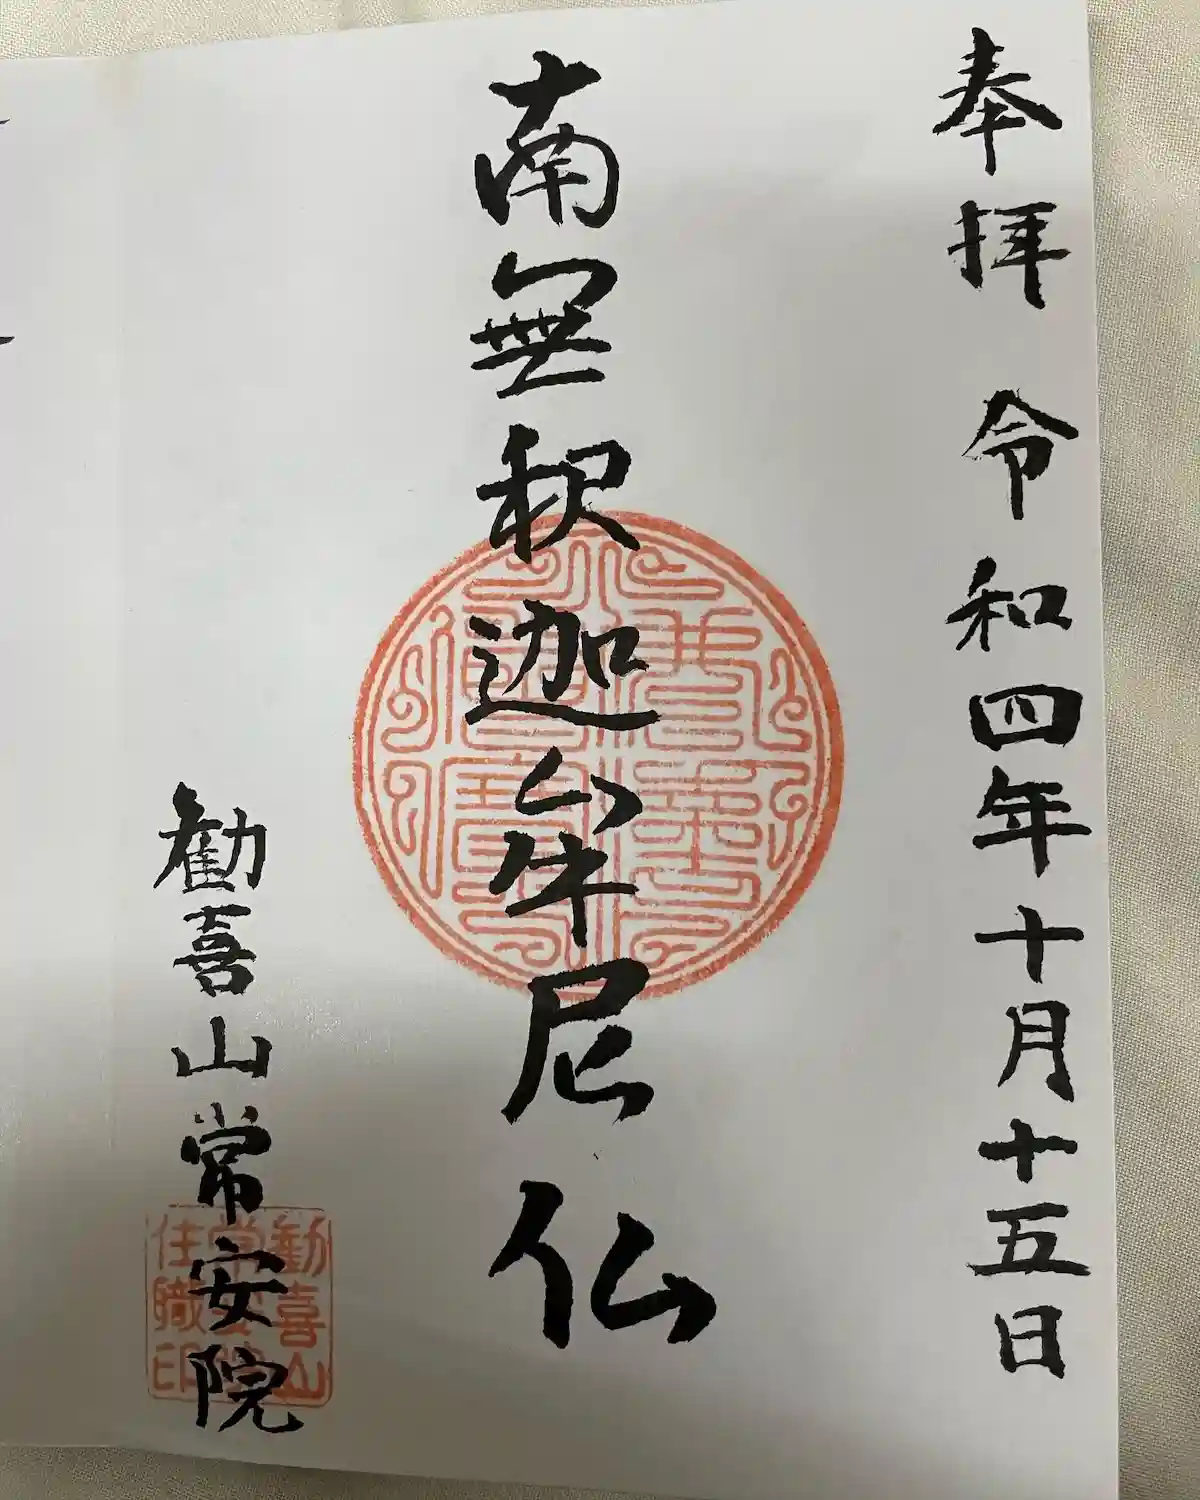 奉拝 令和四年十月十五日
南無釈迦牟尼仏
勧喜山常安院
勧喜山
常安院
住職印